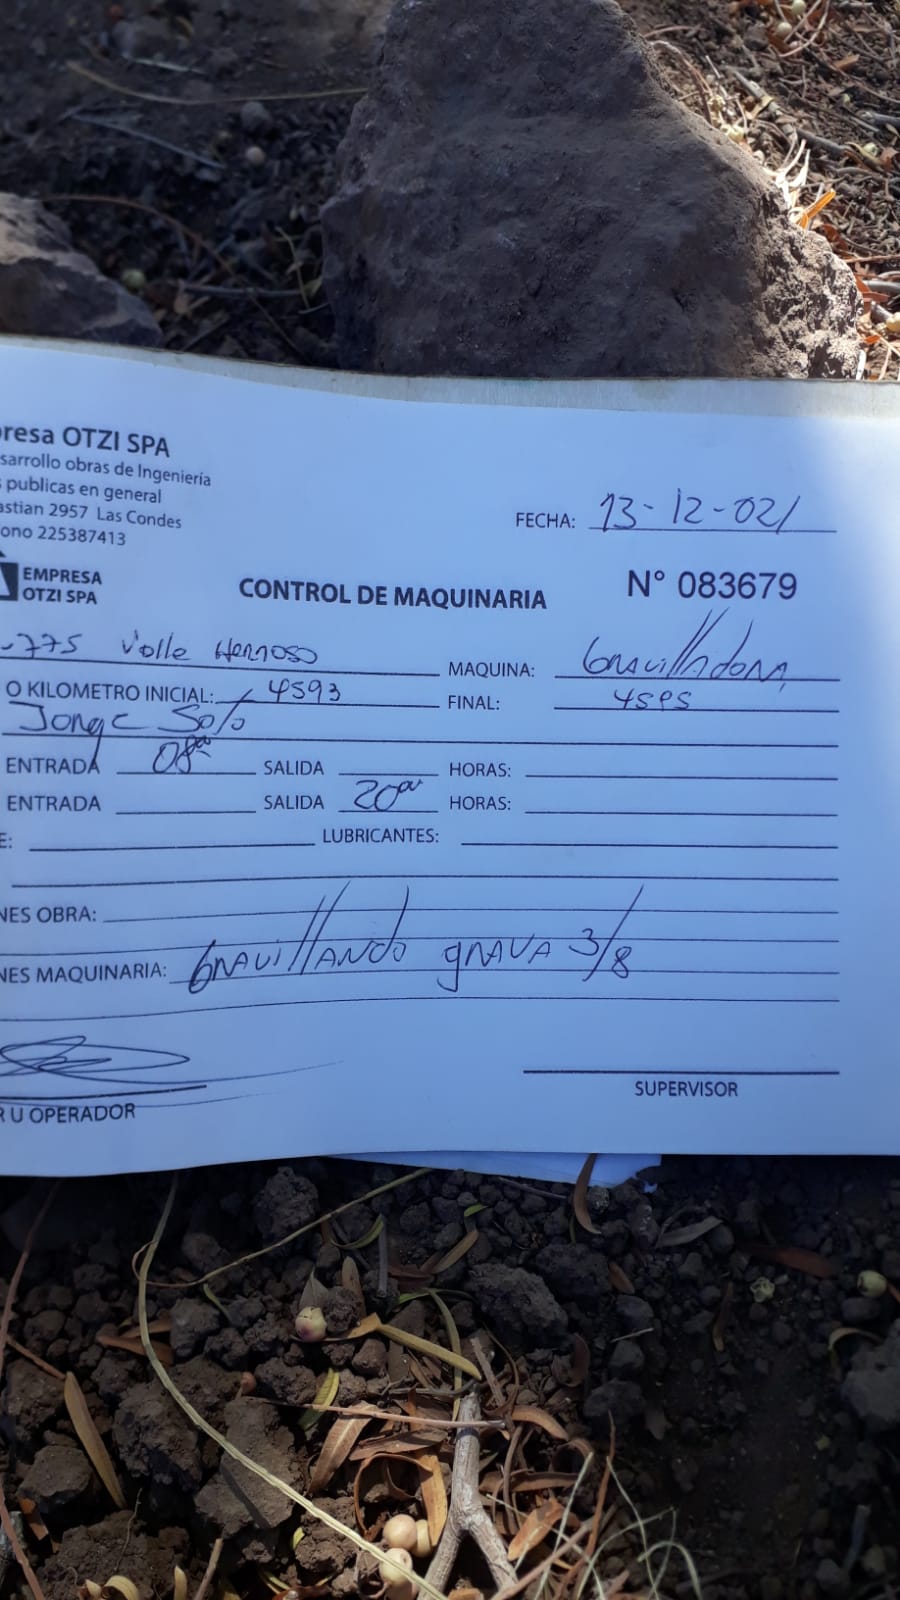 resa OTZI SPA
sarrollo obras de Ingeniería
s publicas en general
astian 2957 Las Condes
ono 225387413
FECHA: 13-12-021
EMPRESA
OTZI SPA
CONTROL DE MAQUINARIA
N° 083679
-775 Valle Hermoso
MAQUINA: Gravilladora
O KILOMETRO INICIAL: 4593
FINAL: 4595
Jorge Soto
ENTRADA 08°° SALIDA HORAS:
ENTRADA SALIDA 20°° HORAS:
E: LUBRICANTES:
NES OBRA:
NES MAQUINARIA: Gravillando grava 3/8
R U OPERADOR
SUPERVISOR